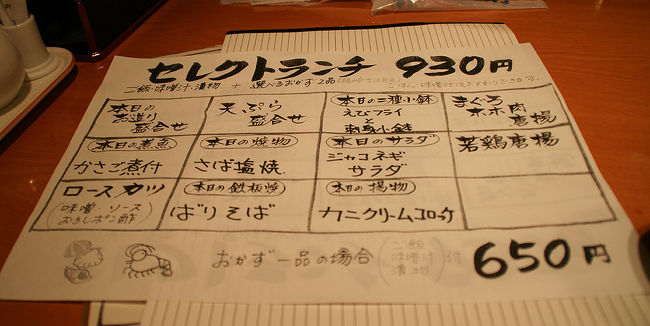 セレクトランチ 930円
ご飯・味噌汁・漬物 + 選べるおかず2品
ごはん・味噌汁はおかわりできます。
本日の
お造り
盛合せ
天ぷら
盛合せ
本日の三種小鉢
えびフライ
と
刺身小鉢
まぐろ
ホホ肉
唐揚
本日の煮魚
かさご煮付
本日の焼物
さば塩焼
本日のサラダ
ジャコネギ
サラダ
若鶏唐揚
ロースカツ
(味噌・ソース
おろしポン酢)
本日の鉄板焼
ばりそば
本日の揚物
カニクリームコロッケ
おかず一品の場合 (ご飯
味噌汁
漬物)付 650円